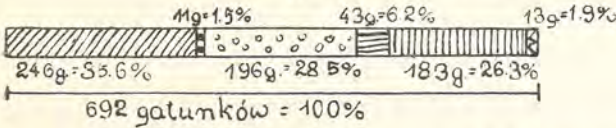 11g=1.5% 43g=6.2% 13g=1.9%
246g.=35.6% 196g.=28.5% 183g=26.3%
692 gatunków = 100%